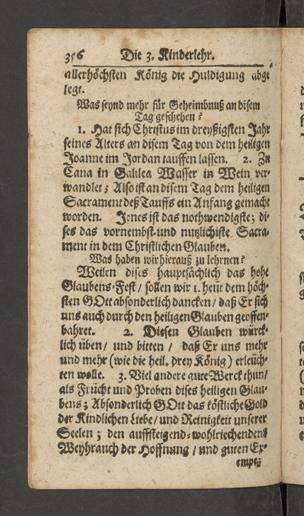 356 Die 3. Kinderlehr.
allerhöchsten König die Huldigung abge
legt.
Was seynd mehr für Geheimbnuß an disem
Tag geschehen?
1. Hat sich Christus im dreyßigsten Jahr
seines Alters an disem Tag von dem heiligen
Joanne im Jordan tauffen lassen. 2. Zu
Cana in Galilea Wasser in Wein ver-
wandlet; Also ist an disem Tag dem heiligen
Sacrament deß Tauffs ein Anfang gemacht
worden. Jenes ist das nothwendigste; di-
ses das vornembst- und nutzlichiste Sacra-
ment in dem Christlichen Glauben.
Was haben wir hierauß zu lehrnen?
Weilen dises hauptsächlich das hohe
Glaubens-Fest / sollen wir 1. heut dem höch-
sten GOtt absonderlich dancken / daß Er sich
uns auch durch den heiligen Glauben geoffen-
bahret. 2. Diesen Glauben würck-
lich üben / und bitten / daß Er uns mehr
und mehr (wie die heil. drey König) erleüch-
ten wolle. 3. Viel andere gute Werck thun /
als Frücht und Proben dises heiligen Glau-
bens; Absonderlich GOtt das köstliche Gold
der Kindlichen Liebe / und Reinigkeit unserer
Seelen; den auffsteigend-wohlriechenden
Weyhrauch der Hoffnung / und guten Ex-
empel;